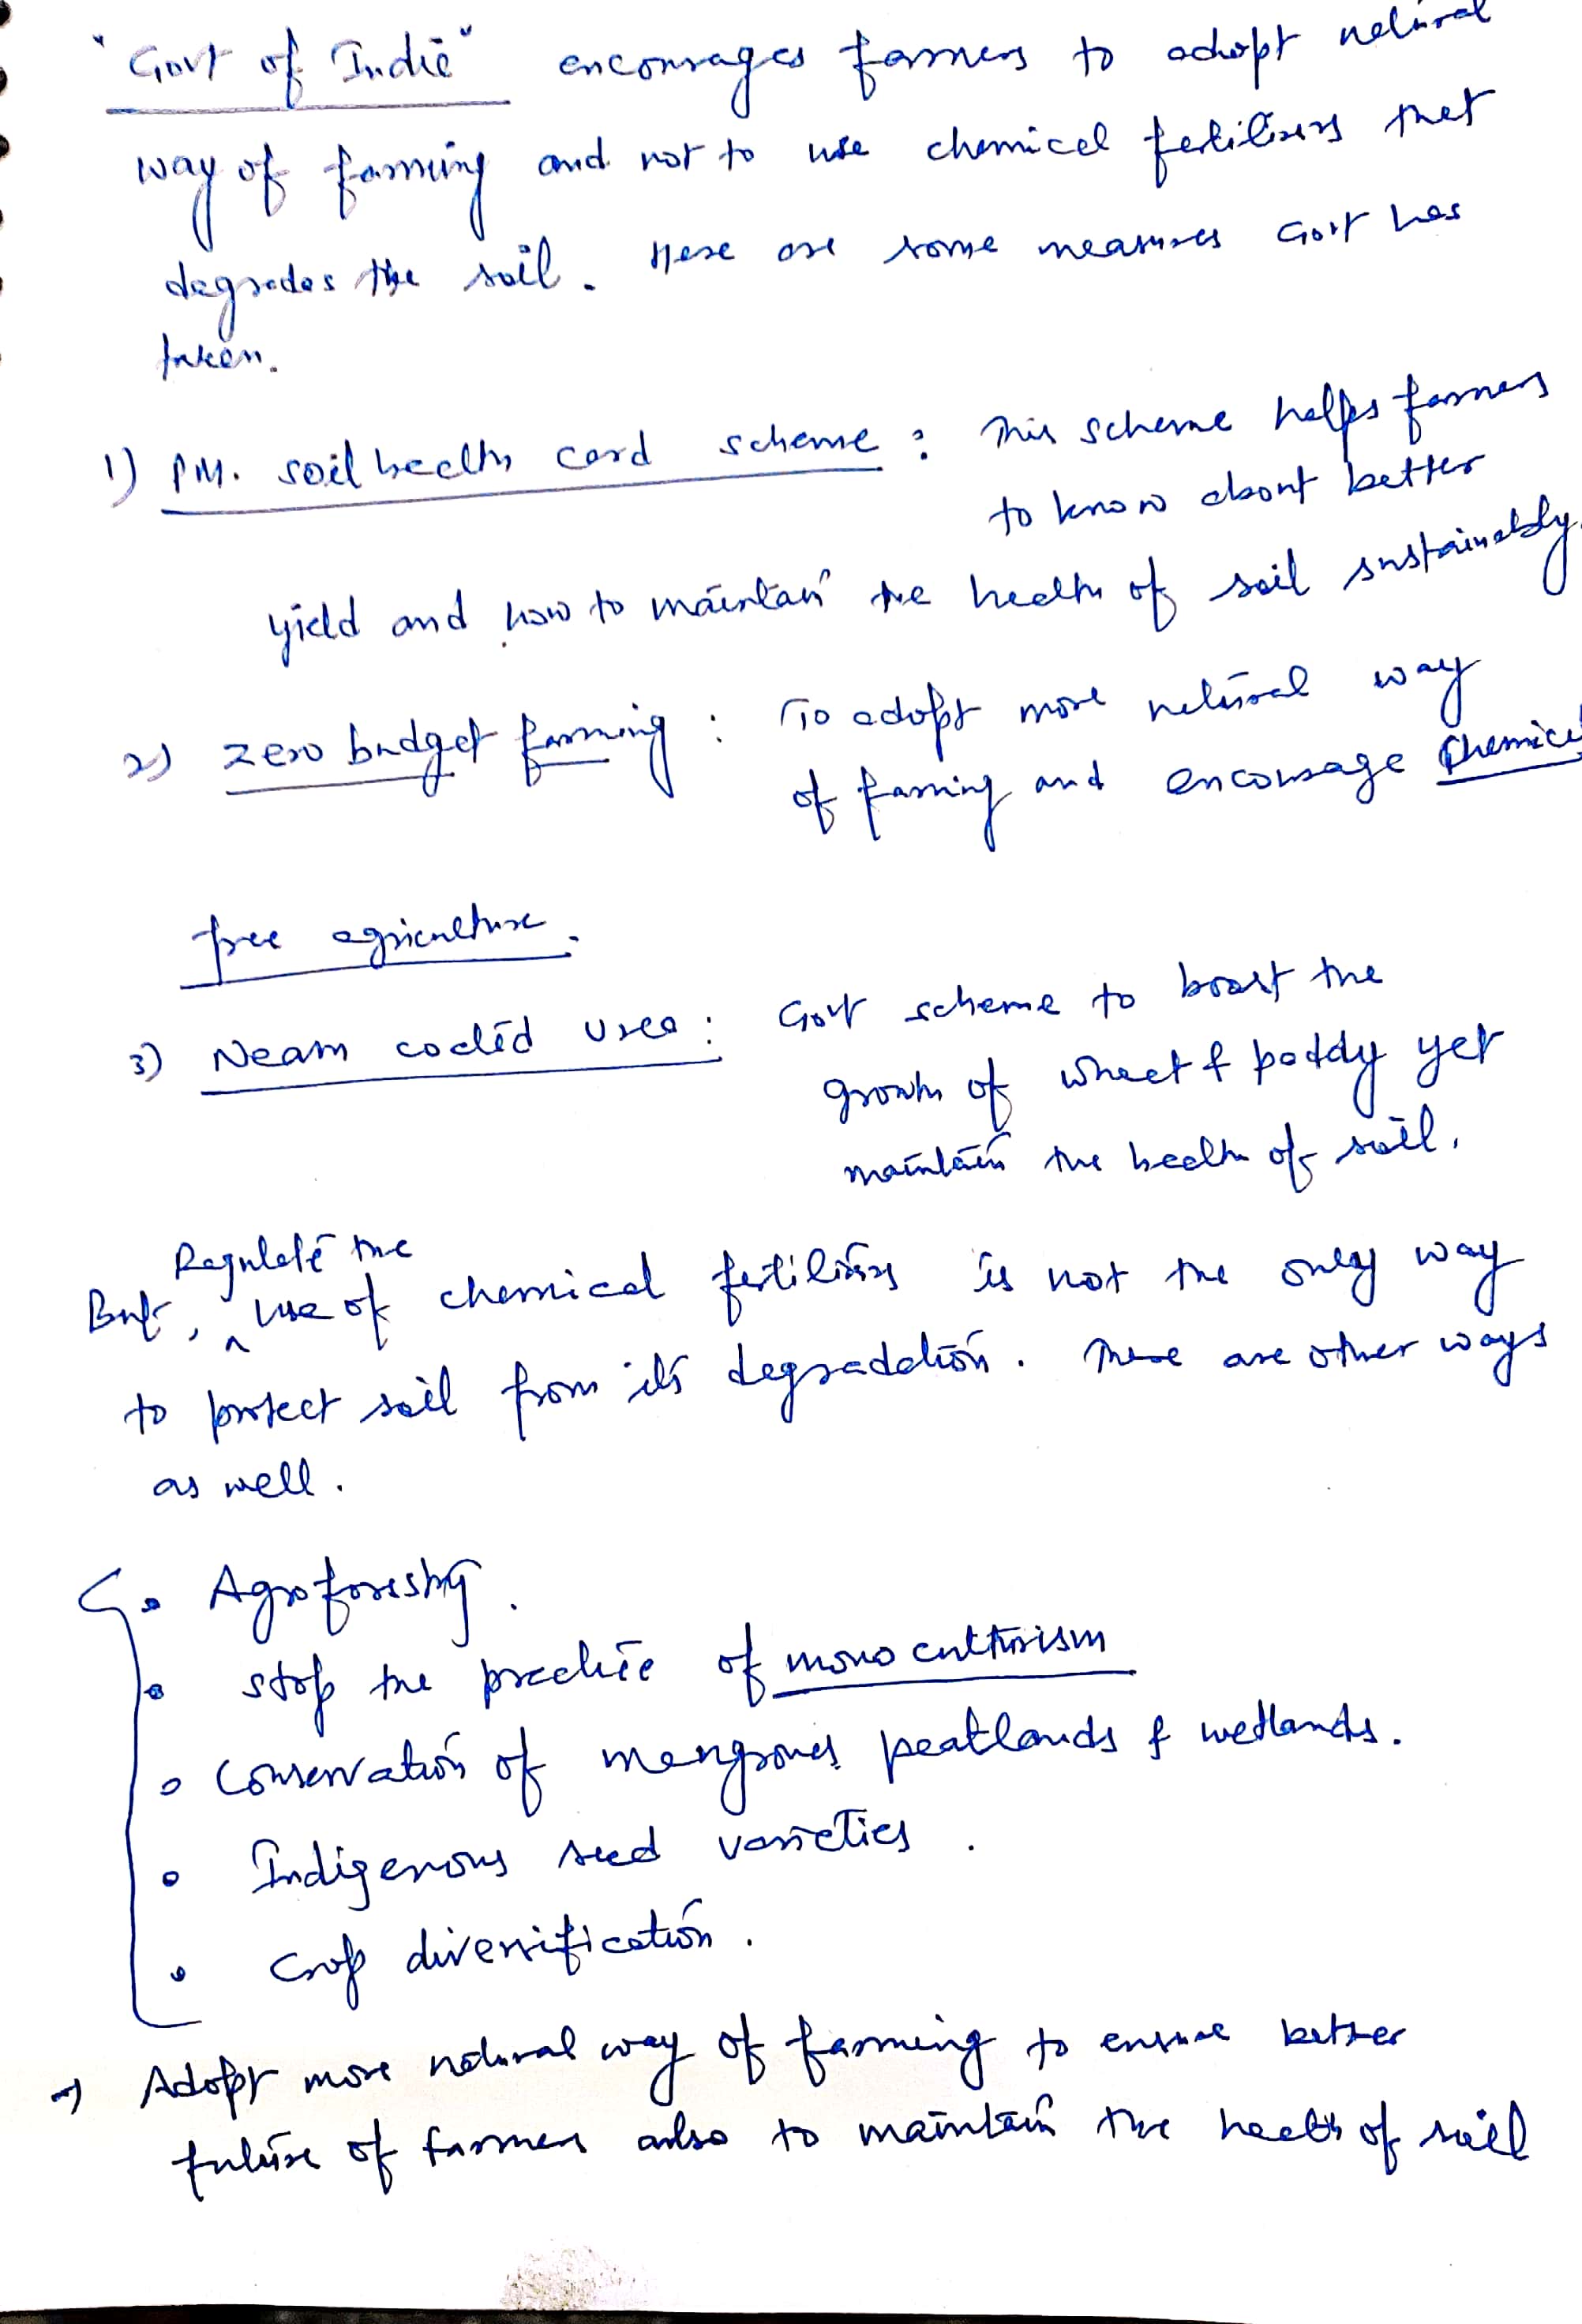 "Govt of India" encourages farmers to adopt natural
way of farming and not to use chemical fertilisers that
degrades the soil. Here are some measures Govt has
taken.
1) PM. soil health card scheme : This scheme helps farmers
to know about better
yield and how to maintain the health of soil sustainably.
2) zero budget farming : To adopt more natural way
of farming and encourage Chemical
free agriculture.
3) Neam coated Urea : Govt scheme to boost the
growth of wheat & paddy yet
maintain the health of soil.
Regulate the
But, ^ use of chemical fertilisers is not the only way
to protect soil from its degradation. There are other ways
as well.
• Agroforestry.
• stop the practice of mono culturism
• Conservation of mangroves peatlands & wetlands.
• Indigenous seed varieties.
• Crop diversification.
→ Adopt more natural way of farming to ensure better
future of farmers also to maintain the health of soil